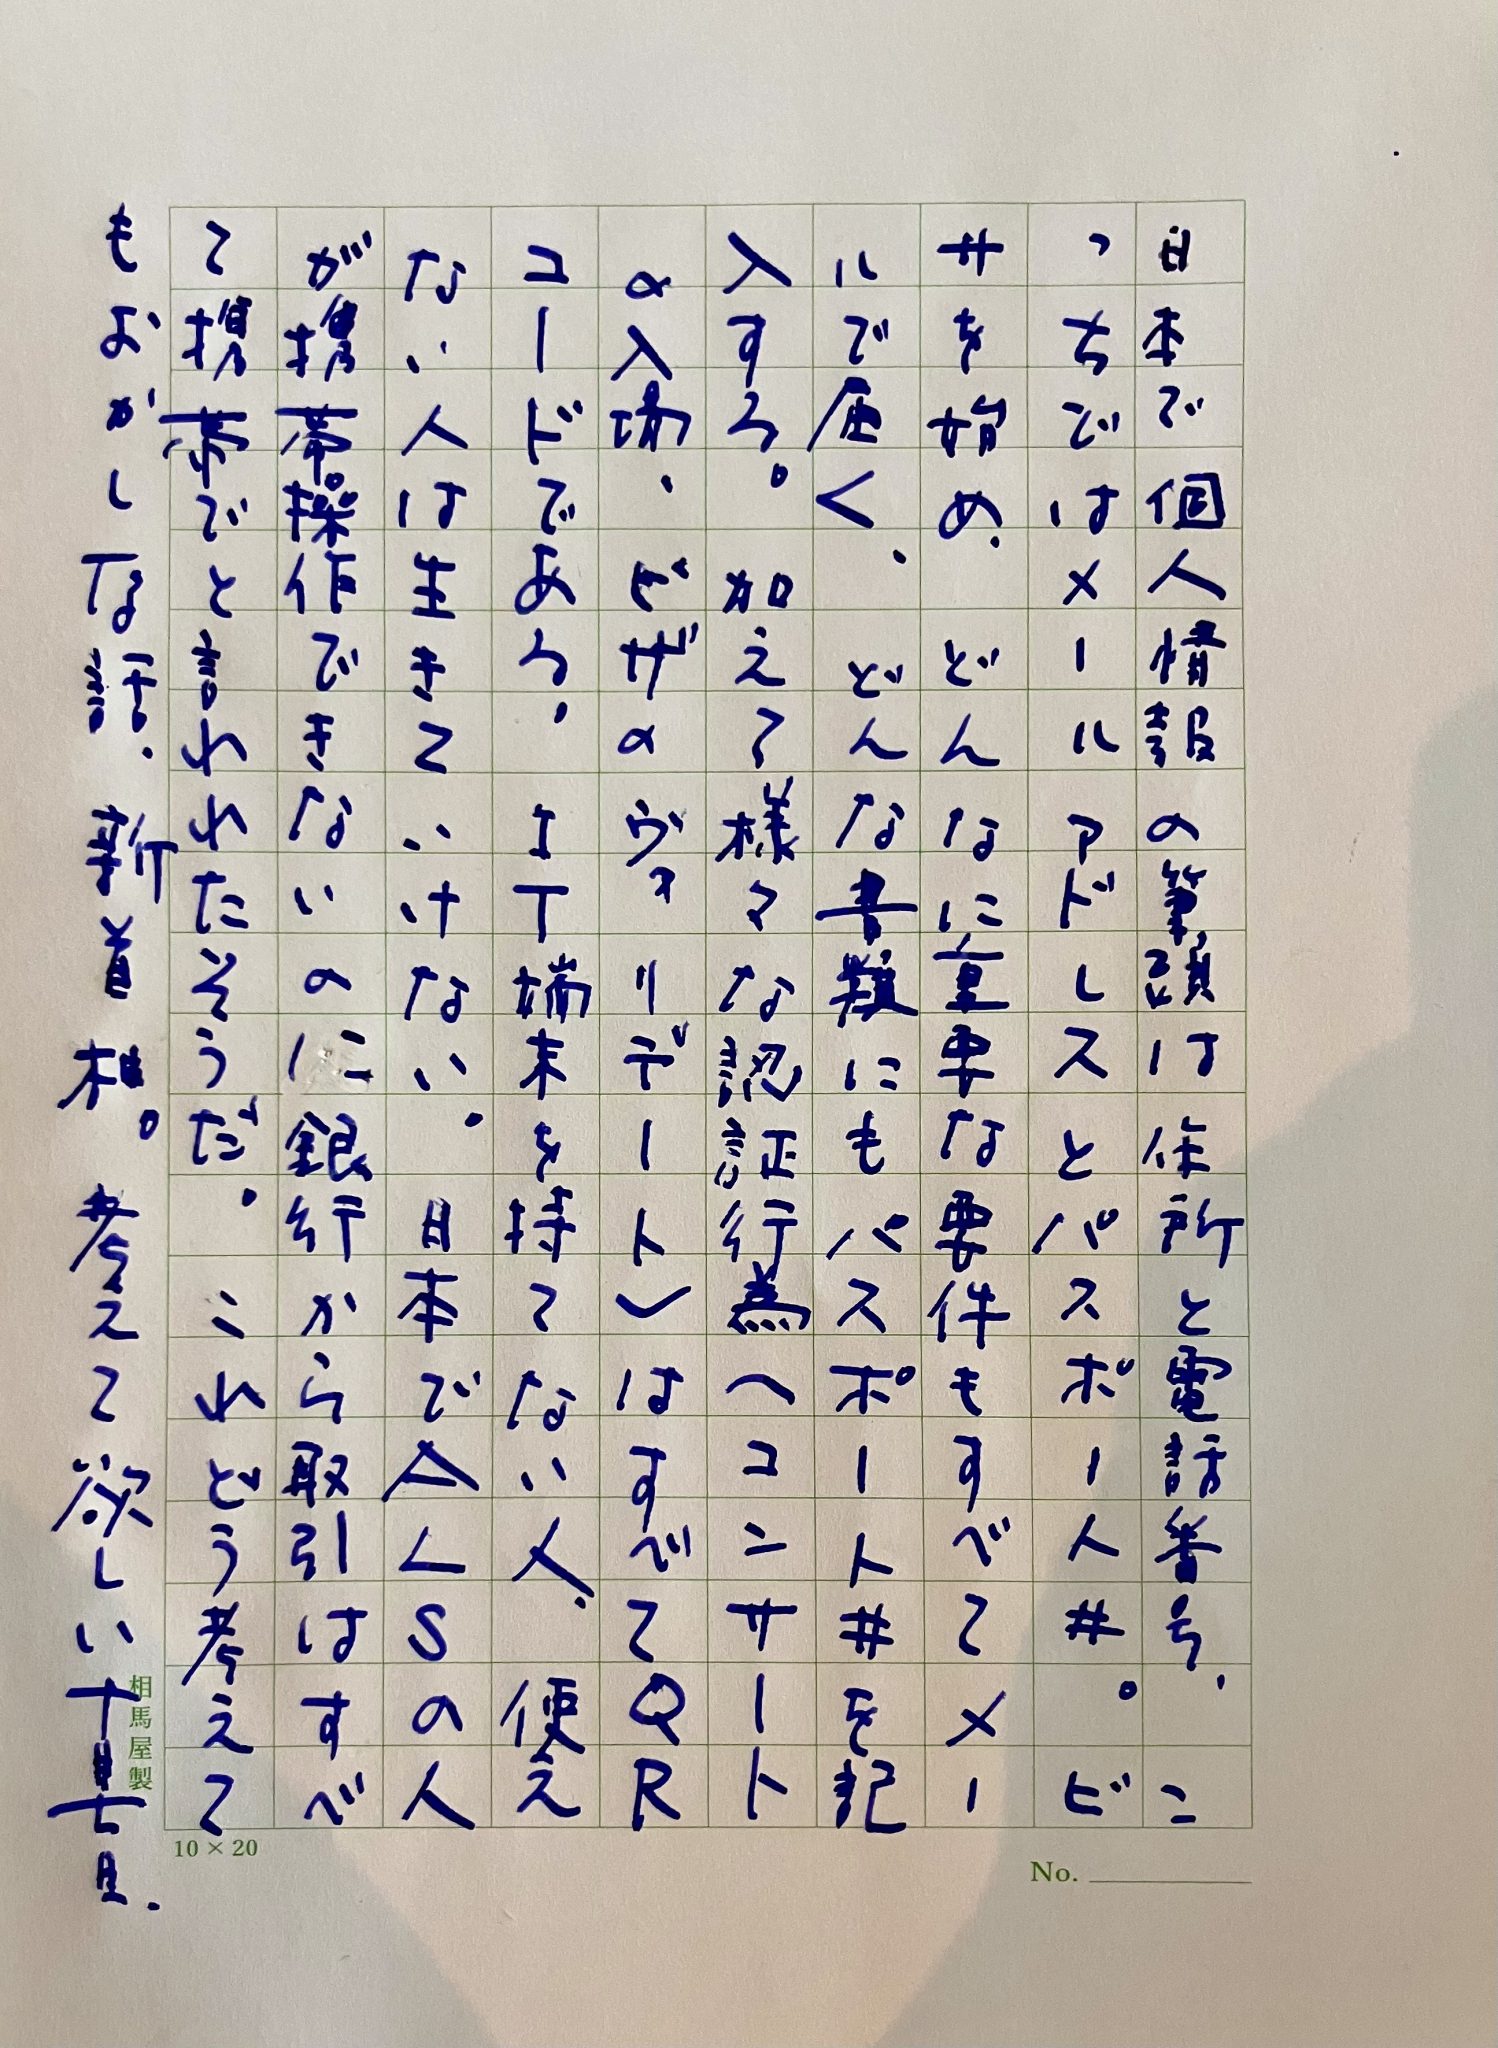 日本で個人情報の筆頭は住所と電話番号、こ
っちではメールアドレスとパスポート#。ビ
サを始め、どんなに重要な要件もすべてメー
ルで届く、どんな書類にもパスポート#を記
入する。加えて様々な認証行為へコンサート
の入場、ビザのヴァリデートンはすべてQR
コードである。IT端末を持てない人、使え
ない人は生きていけない。日本でALSの人
が携帯操作できないのに銀行から取引はすべ
て携帯でと言われたそうだ。これどう考えて
もおかしな話、新首相。考えて欲しい十月七日.
相馬屋製
10×20
No.